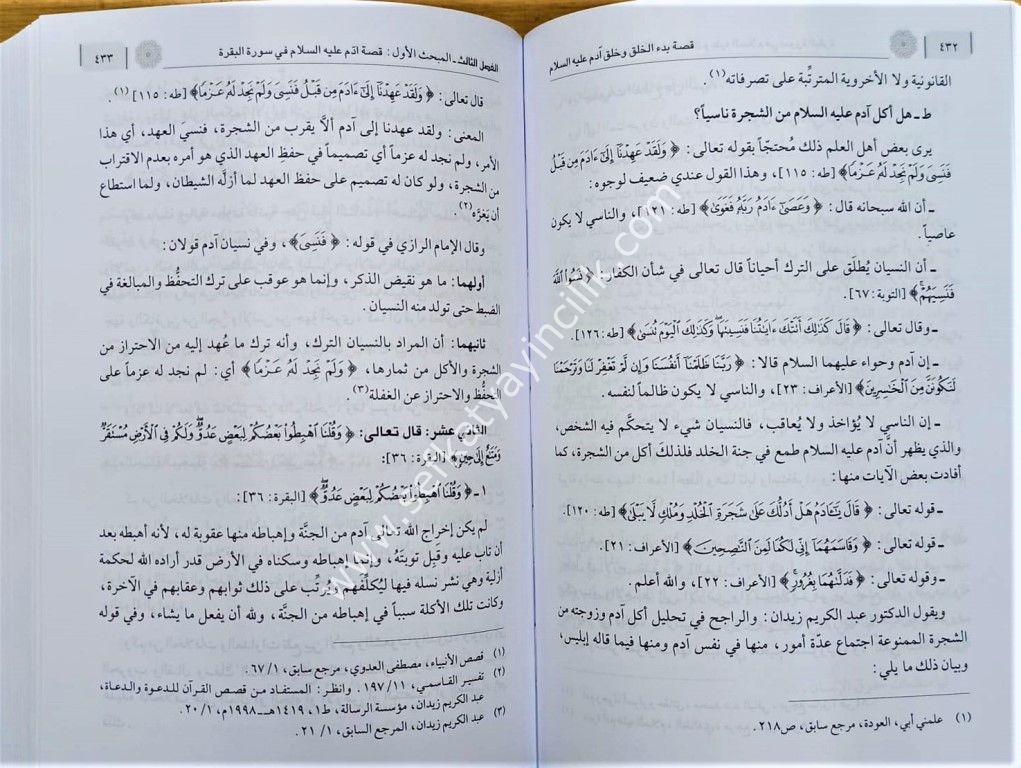 ٤٣٢
قصة بدء الخلق وخلق آدم عليه السلام
القانونية ولا الأخروية المترتِّبة على تصرفاته(١).
ط ـ هل أكل آدم عليه السلام من الشجرة ناسياً؟
يرى بعض أهل العلم ذلك مُحتجّاً بقوله تعالى: ﴿ وَلَقَدْ عَهِدْنَآ إِلَىٰٓ ءَادَمَ مِن قَبْلُ
فَنَسِىَ وَلَمْ نَجِدْ لَهُۥ عَزْمًا﴾ [طه: ١١٥]، وهذا القول عندي ضعيف لوجوه:
ـ أن الله سبحانه قال: ﴿ وَعَصَىٰٓ ءَادَمُ رَبَّهُۥ فَغَوَىٰ﴾ [طه: ١٢١]، والناسي لا يكون
عاصياً.
ـ أن النسيان يُطلَق على الترك أحياناً قال تعالى في شأن الكفار: ﴿نَسُوا۟ ٱللَّهَ
فَنَسِيَهُمْ﴾ [التوبة: ٦٧].
ـ وقال تعالى: ﴿ قَالَ كَذَٰلِكَ أَتَتْكَ ءَايَٰتُنَا فَنَسِينَهَا وَكَذَٰلِكَ ٱلْيَوْمَ تُنسَىٰ﴾ [طه: ١٢٦].
ـ إن آدم وحواء عليهما السلام قالا: ﴿ رَبَّنَا ظَلَمْنَآ أَنفُسَنَا وَإِن لَّمْ تَغْفِرْ لَنَا وَتَرْحَمْنَا
لَنَكُونَنَّ مِنَ ٱلْخَٰسِرِينَ﴾ [الأعراف: ٢٣]، والناسي لا يكون ظالماً لنفسه.
ـ إن الناسي لا يُؤاخذ ولا يُعاقب، فالنسيان شيء لا يتحكّم فيه الشخص،
والذي يظهر أنَّ آدم عليه السلام طمع في جنة الخلد فلذلك أكل من الشجرة، كما
أفادت بعض الآيات منها:
ـ قوله تعالى: ﴿ قَالَ يَٰٓـَٔادَمُ هَلْ أَدُلُّكَ عَلَىٰ شَجَرَةِ ٱلْخُلْدِ وَمُلْكٍ لَّا يَبْلَىٰ﴾ [طه: ١٢٠].
ـ قوله تعالى: ﴿ وَقَاسَمَهُمَآ إِنِّى لَكُمَا لَمِنَ ٱلنَّٰصِحِينَ﴾ [الأعراف: ٢١].
ـ وقوله تعالى: ﴿ فَدَلَّىٰهُمَا بِغُرُورٍ﴾ [الأعراف: ٢٢]، والله أعلم.
ويقول الدكتور عبد الكريم زيدان: والراجح في تحليل أكل آدم وزوجته من
الشجرة الممنوعة اجتماع عدّة أمور، منها في نفس آدم ومنها فيما قاله إبليس،
وبيان ذلك ما يلي:
(١) علمني أبي، العودة، مرجع سابق، ص٢١٨.
الفصل الثالث ـ المبحث الأول: قصة آدم عليه السلام في سورة البقرة
٤٣٣
قال تعالى: ﴿ وَلَقَدْ عَهِدْنَآ إِلَىٰٓ ءَادَمَ مِن قَبْلُ فَنَسِىَ وَلَمْ نَجِدْ لَهُۥ عَزْمًا﴾ [طه: ١١٥](١).
المعنى: ولقد عهدنا إلى آدم ألَّا يقرب من الشجرة، فنسي العهد، أي هذا
الأمر، ولم نجد له عزماً أي تصميماً في حفظ العهد الذي هو أمره بعدم الاقتراب
من الشجرة، ولو كان له تصميم على حفظ العهد لما أزلَّه الشيطان، ولما استطاع
أن يَغرَّه(٢).
وقال الإمام الرازي في قوله: ﴿ فَنَسِىَ﴾، وفي نسيان آدم قولان:
أولهما: ما هو نقيض الذكر، وإنما هو عوقب على ترك التحفُّظ والمبالغة في
الضبط حتى تولد منه النسيان.
ثانيهما: أن المراد بالنسيان الترك، وأنه ترك ما عُهد إليه من الاحتراز من
الشجرة والأكل من ثمارها، ﴿ وَلَمْ نَجِدْ لَهُۥ عَزْمًا﴾ أي: لم نجد له عزماً على
التحفُّظ والاحتراز عن الغفلة(٣).
الثاني عشر: قال تعالى: ﴿ وَقُلْنَا ٱهْبِطُوا۟ بَعْضُكُمْ لِبَعْضٍ عَدُوٌّ وَلَكُمْ فِى ٱلْأَرْضِ مُسْتَقَرٌّ
وَمَتَٰعٌ إِلَىٰ حِينٍ﴾ [البقرة: ٣٦]:
١ ـ ﴿وَقُلْنَا ٱهْبِطُوا۟ بَعْضُكُمْ لِبَعْضٍ عَدُوٌّ﴾ [البقرة: ٣٦]:
لم يكن إخراج الله تعالى آدم من الجنَّة وإهباطه منها عقوبة له، لأنه أهبطه بعد
أن تاب عليه وقبِل توبتَهُ، وإنما إهباطه وسكناه في الأرض قدر أراده الله لحكمة
أزلية وهي نشر نسله فيها ليُكلِّفهم ويُرتِّب على ذلك ثوابهم وعقابهم في الآخرة،
وكانت تلك الأكلة سبباً في إهباطه من الجنَّة، ولله أن يفعل ما يشاء، وفي قوله
(١) قصص الأنبياء، مصطفى العدوي، مرجع سابق، ٦٧/١.
(٢) تفسير القاسمي، ١٩٧/١١. وانظر: المستفاد من قصص القرآن للدعوة والدعاة،
عبد الكريم زيدان، مؤسسة الرسالة، ط١، ١٤١٩هـ ـ ١٩٩٨م، ٢٠/١.
(٣) عبد الكريم زيدان، المرجع السابق، ٢١/١.
www.seriatyayincilik.com